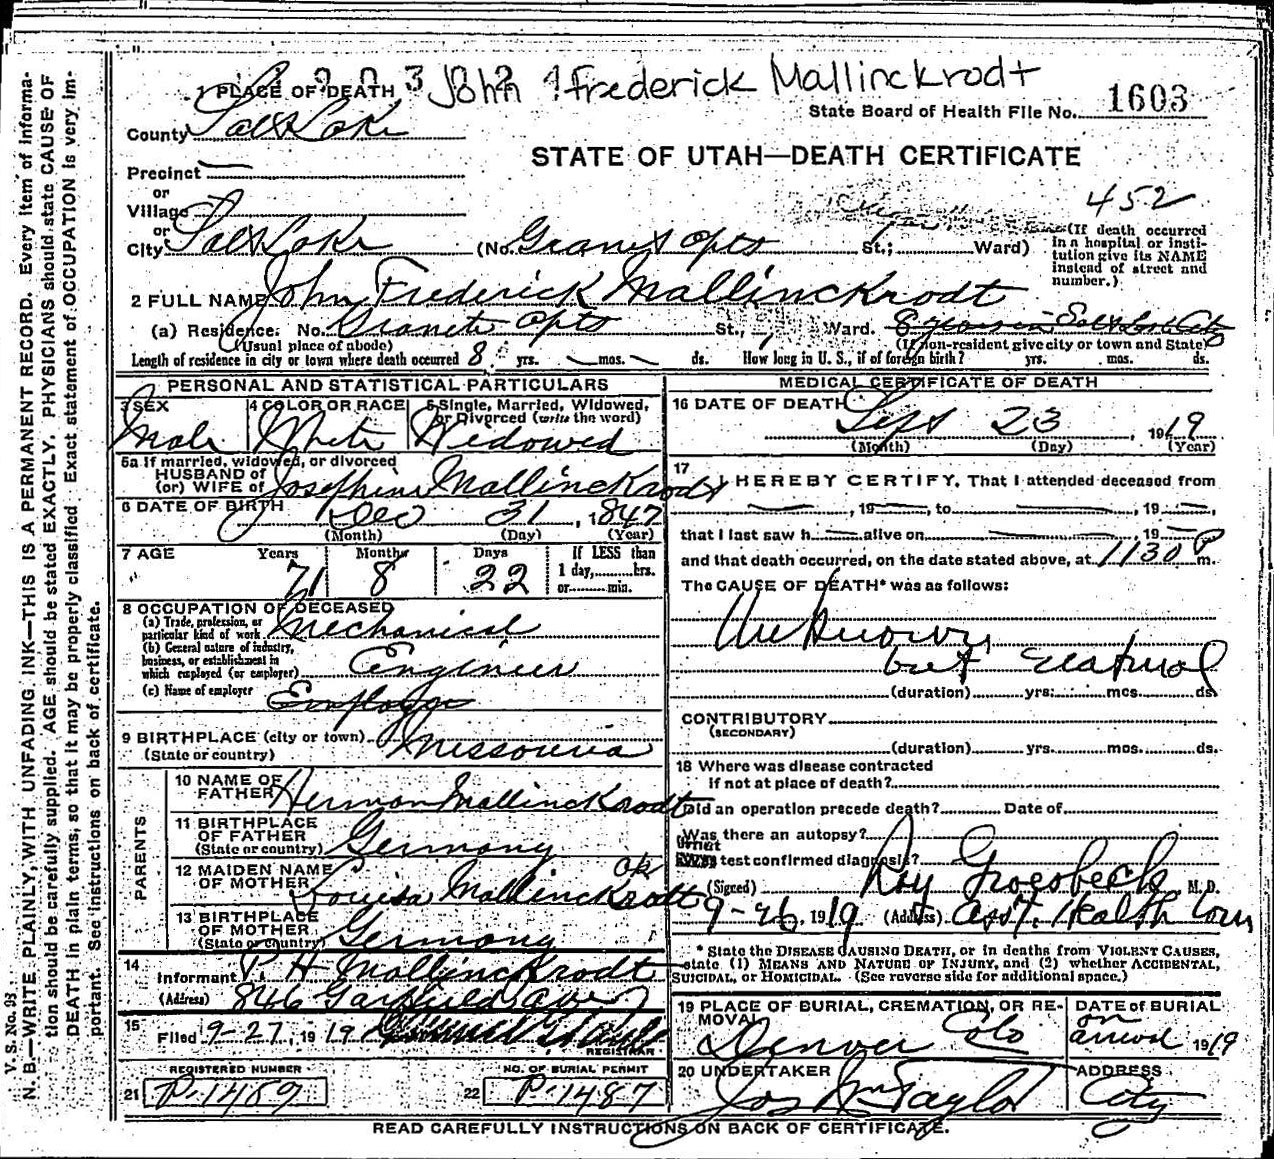 John Frederick Mallinckrodt
1 PLACE OF DEATH
State Board of Health File No. 1603
County Salt Lake
STATE OF UTAH—DEATH CERTIFICATE
Precinct —
or
Village
452
or
City Salt Lake (No. Granet Apts St.; Ward)
(If death occurred in a hospital or institution give its NAME instead of street and number.)
2 FULL NAME John Frederick Mallinckrodt
(a) Residence. No. Granet Apts St., Ward. 8 years in Salt Lake City
(Usual place of abode) (If non-resident give city or town and State)
Length of residence in city or town where death occurred 8 yrs. — mos. — ds. How long in U. S., if of foreign birth? yrs. mos. ds.
PERSONAL AND STATISTICAL PARTICULARS
3 SEX Male
4 COLOR OR RACE White
5 Single, Married, Widowed, or Divorced (write the word) Widowed
5a If married, widowed, or divorced
HUSBAND of
(or) WIFE of Josephine Mallinckrodt
6 DATE OF BIRTH Dec 31, 1847
(Month) (Day) (Year)
7 AGE Years 71 Months 8 Days 22 If LESS than 1 day, hrs. or min.
8 OCCUPATION OF DECEASED
(a) Trade, profession, or particular kind of work Mechanical
(b) General nature of industry, business, or establishment in which employed (or employer) Engineer
(c) Name of employer Employe
9 BIRTHPLACE (city or town) Missouria
(State or country)
PARENTS
10 NAME OF FATHER Herman Mallinckrodt
11 BIRTHPLACE OF FATHER (State or country) Germany
12 MAIDEN NAME OF MOTHER Louisa Mallinckrodt ok
13 BIRTHPLACE OF MOTHER (State or country) Germany
14 Informant P. H. Mallinckrodt
(Address) 846 Garfield Ave
15 Filed 9-27, 1919
REGISTRAR
REGISTERED NUMBER
21 P-1489
NO. OF BURIAL PERMIT
22 P-1487
MEDICAL CERTIFICATE OF DEATH
16 DATE OF DEATH Sept 23, 1919
(Month) (Day) (Year)
17 I HEREBY CERTIFY, That I attended deceased from
—, 19—, to —, 19—,
that I last saw h— alive on — 19—
and that death occurred, on the date stated above, at 1130 P m.
The CAUSE OF DEATH* was as follows:
Unknown,
but natural
(duration) yrs. mos. ds.
CONTRIBUTORY
(SECONDARY)
(duration) yrs. mos. ds.
18 Where was disease contracted
if not at place of death?
Did an operation precede death? Date of
Was there an autopsy?
What test confirmed diagnosis?
(Signed) Roy Groesbeck, M. D.
9-26, 1919 (Address) Ass't. Health Com
* State the DISEASE CAUSING DEATH, or in deaths from VIOLENT CAUSES,
state (1) MEANS AND NATURE OF INJURY, and (2) whether ACCIDENTAL,
SUICIDAL, or HOMICIDAL. (See reverse side for additional space.)
19 PLACE OF BURIAL, CREMATION, OR REMOVAL Denver Colo
DATE OF BURIAL on arrival 1919
20 UNDERTAKER Jos Wm Taylor
ADDRESS City
READ CAREFULLY INSTRUCTIONS ON BACK OF CERTIFICATE.
V. S. No. 93.
N. B.—WRITE PLAINLY, WITH UNFADING INK—THIS IS A PERMANENT RECORD. Every item of information should be carefully supplied. AGE should be stated EXACTLY. PHYSICIANS should state CAUSE OF DEATH in plain terms, so that it may be properly classified. Exact statement of OCCUPATION is very important. See instructions on back of certificate.